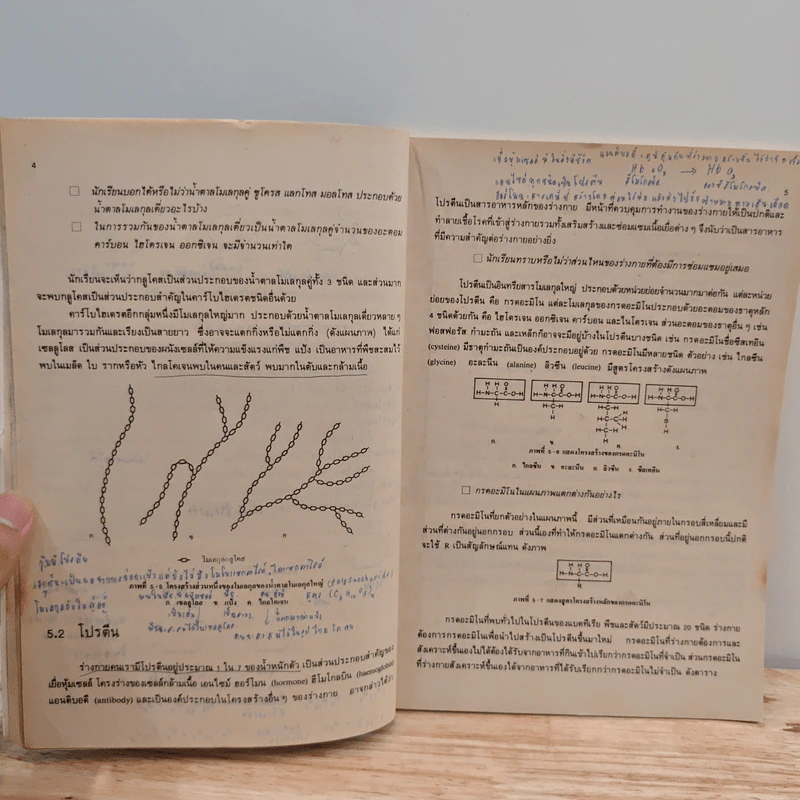 4
นักเรียนบอกได้หรือไม่ว่าน้ำตาลโมเลกุลคู่ ซูโครส แลกโทส มอลโทส ประกอบด้วย
น้ำตาลโมเลกุลเดี่ยวอะไรบ้าง
ในการรวมกันของน้ำตาลโมเลกุลเดี่ยวเป็นน้ำตาลโมเลกุลคู่จำนวนของอะตอม
คาร์บอน ไฮโดรเจน ออกซิเจน จะมีจำนวนเท่าใด
นักเรียนจะเห็นว่ากลูโคสเป็นส่วนประกอบของน้ำตาลโมเลกุลคู่ทั้ง 3 ชนิด และส่วนมาก
จะพบกลูโคสเป็นส่วนประกอบสำคัญในคาร์โบไฮเดรตชนิดอื่นด้วย
คาร์โบไฮเดรตอีกกลุ่มหนึ่งมีโมเลกุลใหญ่มาก ประกอบด้วยน้ำตาลโมเลกุลเดี่ยวหลาย ๆ
โมเลกุลมารวมกันและเรียงเป็นสายยาว ซึ่งอาจจะแตกกิ่งหรือไม่แตกกิ่ง (ดังแผนภาพ) ได้แก่
เซลลูโลส เป็นส่วนประกอบของผนังเซลล์ที่ให้ความแข็งแรงแก่พืช แป้ง เป็นอาหารที่พืชสะสมไว้
พบในเมล็ด ใบ รากหรือหัว ไกลโคเจนพบในคนและสัตว์ พบมากในตับและกล้ามเนื้อ
ก ข ค
โมเลกุลกลูโคส
ภาพที่ 5-5 โครงสร้างส่วนหนึ่งของโมเลกุลของน้ำตาลโมเลกุลใหญ่ (Polysaccharide)
ก. เซลลูโลส ข. แป้ง ค. ไกลโคเจน
5.2 โปรตีน
ร่างกายคนเรามีโปรตีนอยู่ประมาณ 1 ใน 7 ของน้ำหนักตัว เป็นส่วนประกอบสำคัญของ
เยื่อหุ้มเซลล์ โครงร่างของเซลล์กล้ามเนื้อ เอนไซม์ ฮอร์โมน (hormone) ฮีโมโกลบิน (haemoglobin)
แอนติบอดี (antibody) และเป็นองค์ประกอบในโครงสร้างอื่น ๆ ของร่างกาย อาจกล่าวได้ว่า
5
Hb + O₂ → HbO₂
โปรตีนเป็นสารอาหารหลักของร่างกาย มีหน้าที่ควบคุมการทำงานของร่างกายให้เป็นปกติและ
ทำลายเชื้อโรคที่เข้าสู่ร่างกายรวมทั้งเสริมสร้างและซ่อมแซมเนื้อเยื่อต่าง ๆ จึงนับว่าเป็นสารอาหาร
ที่มีความสำคัญต่อร่างกายอย่างยิ่ง
นักเรียนทราบหรือไม่ว่าส่วนไหนของร่างกายที่ต้องมีการซ่อมแซมอยู่เสมอ
โปรตีนเป็นอินทรียสารโมเลกุลใหญ่ ประกอบด้วยหน่วยย่อยจำนวนมากมาต่อกัน แต่ละหน่วย
ย่อยของโปรตีน คือ กรดอะมิโน แต่ละโมเลกุลของกรดอะมิโนประกอบด้วยอะตอมของธาตุหลัก
4 ชนิดด้วยกัน คือ ไฮโดรเจน ออกซิเจน คาร์บอน และไนโตรเจน ส่วนอะตอมของธาตุอื่น ๆ เช่น
ฟอสฟอรัส กำมะถัน และเหล็กก็อาจจะมีอยู่บ้างในโปรตีนบางชนิด เช่น กรดอะมิโนชื่อซีสเทอิน
(cysteine) มีธาตุกำมะถันเป็นองค์ประกอบอยู่ด้วย กรดอะมิโนมีหลายชนิด ตัวอย่าง เช่น ไกลซีน
(glycine) อะละนีน (alanine) ลิวซีน (leucine) มีสูตรโครงสร้างดังแผนภาพ
ก. ข. ค. ง.
ภาพที่ 5-6 แสดงโครงสร้างของกรดอะมิโน
ก. ไกลซีน ข. อะละนีน ค. ลิวซีน ง. ซีสเทอีน
กรดอะมิโนในแผนภาพแตกต่างกันอย่างไร
กรดอะมิโนที่ยกตัวอย่างในแผนภาพนี้ มีส่วนที่เหมือนกันอยู่ภายในกรอบสี่เหลี่ยมและมี
ส่วนที่ต่างกันอยู่นอกกรอบ ส่วนนี้เองที่ทำให้กรดอะมิโนแตกต่างกัน ส่วนที่อยู่นอกกรอบนี้ปกติ
จะใช้ R เป็นสัญลักษณ์แทน ดังภาพ
ภาพที่ 5-7 แสดงสูตรโครงสร้างหลักของกรดอะมิโน
กรดอะมิโนที่พบทั่วไปในโปรตีนของแบคทีเรีย พืชและสัตว์มีประมาณ 20 ชนิด ร่างกาย
ต้องการกรดอะมิโนเพื่อนำไปสร้างเป็นโปรตีนขึ้นมาใหม่ กรดอะมิโนที่ร่างกายต้องการและ
สังเคราะห์ขึ้นเองไม่ได้ต้องได้รับจากอาหารที่กินเข้าไปเรียกว่ากรดอะมิโนที่จำเป็น ส่วนกรดอะมิโน
ที่ร่างกายสังเคราะห์ขึ้นเองได้จากอาหารที่ได้รับเรียกว่ากรดอะมิโนไม่จำเป็น ดังตาราง